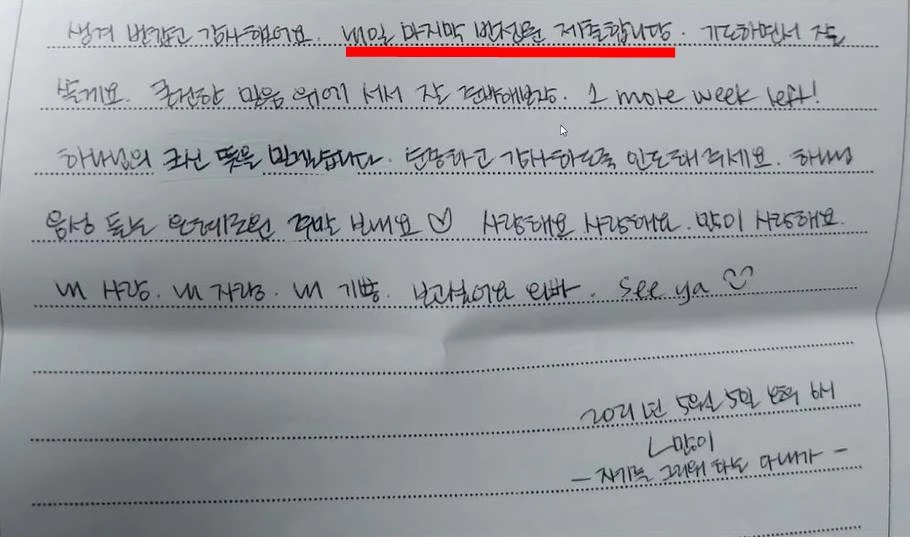 생겨 반갑고 감사해어요. 내일 마지막 반전문 제출합니다. 기도하면서 잘
쓸게요. 굳건한 믿음 위에 서서 잘 준비해보장. 1 more week left!
하나님의 크신 뜻을 믿게습니다. 분명하고 감사하도록 인도해주세요. 하나님
음성 듣는 은혜로운 주말 보내요 ♡ 사랑해요 사랑해요. 많이 사랑해요.
내 사랑. 내 자랑. 내 기쁨. 보고싶어요 오빠. See ya ♡
2021년 5월 5일 오후 6시
ㄴ많이
- 자기를 그리워 하는 아내가 -